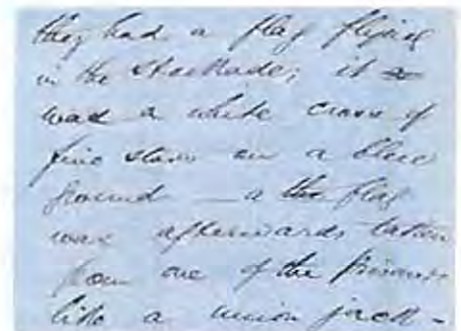 they had a flag flying
in the stockade; it
was a white cross of
five stars on a blue
ground — a the flag
was afterwards taken
from one of the prisoners
like a union jack —